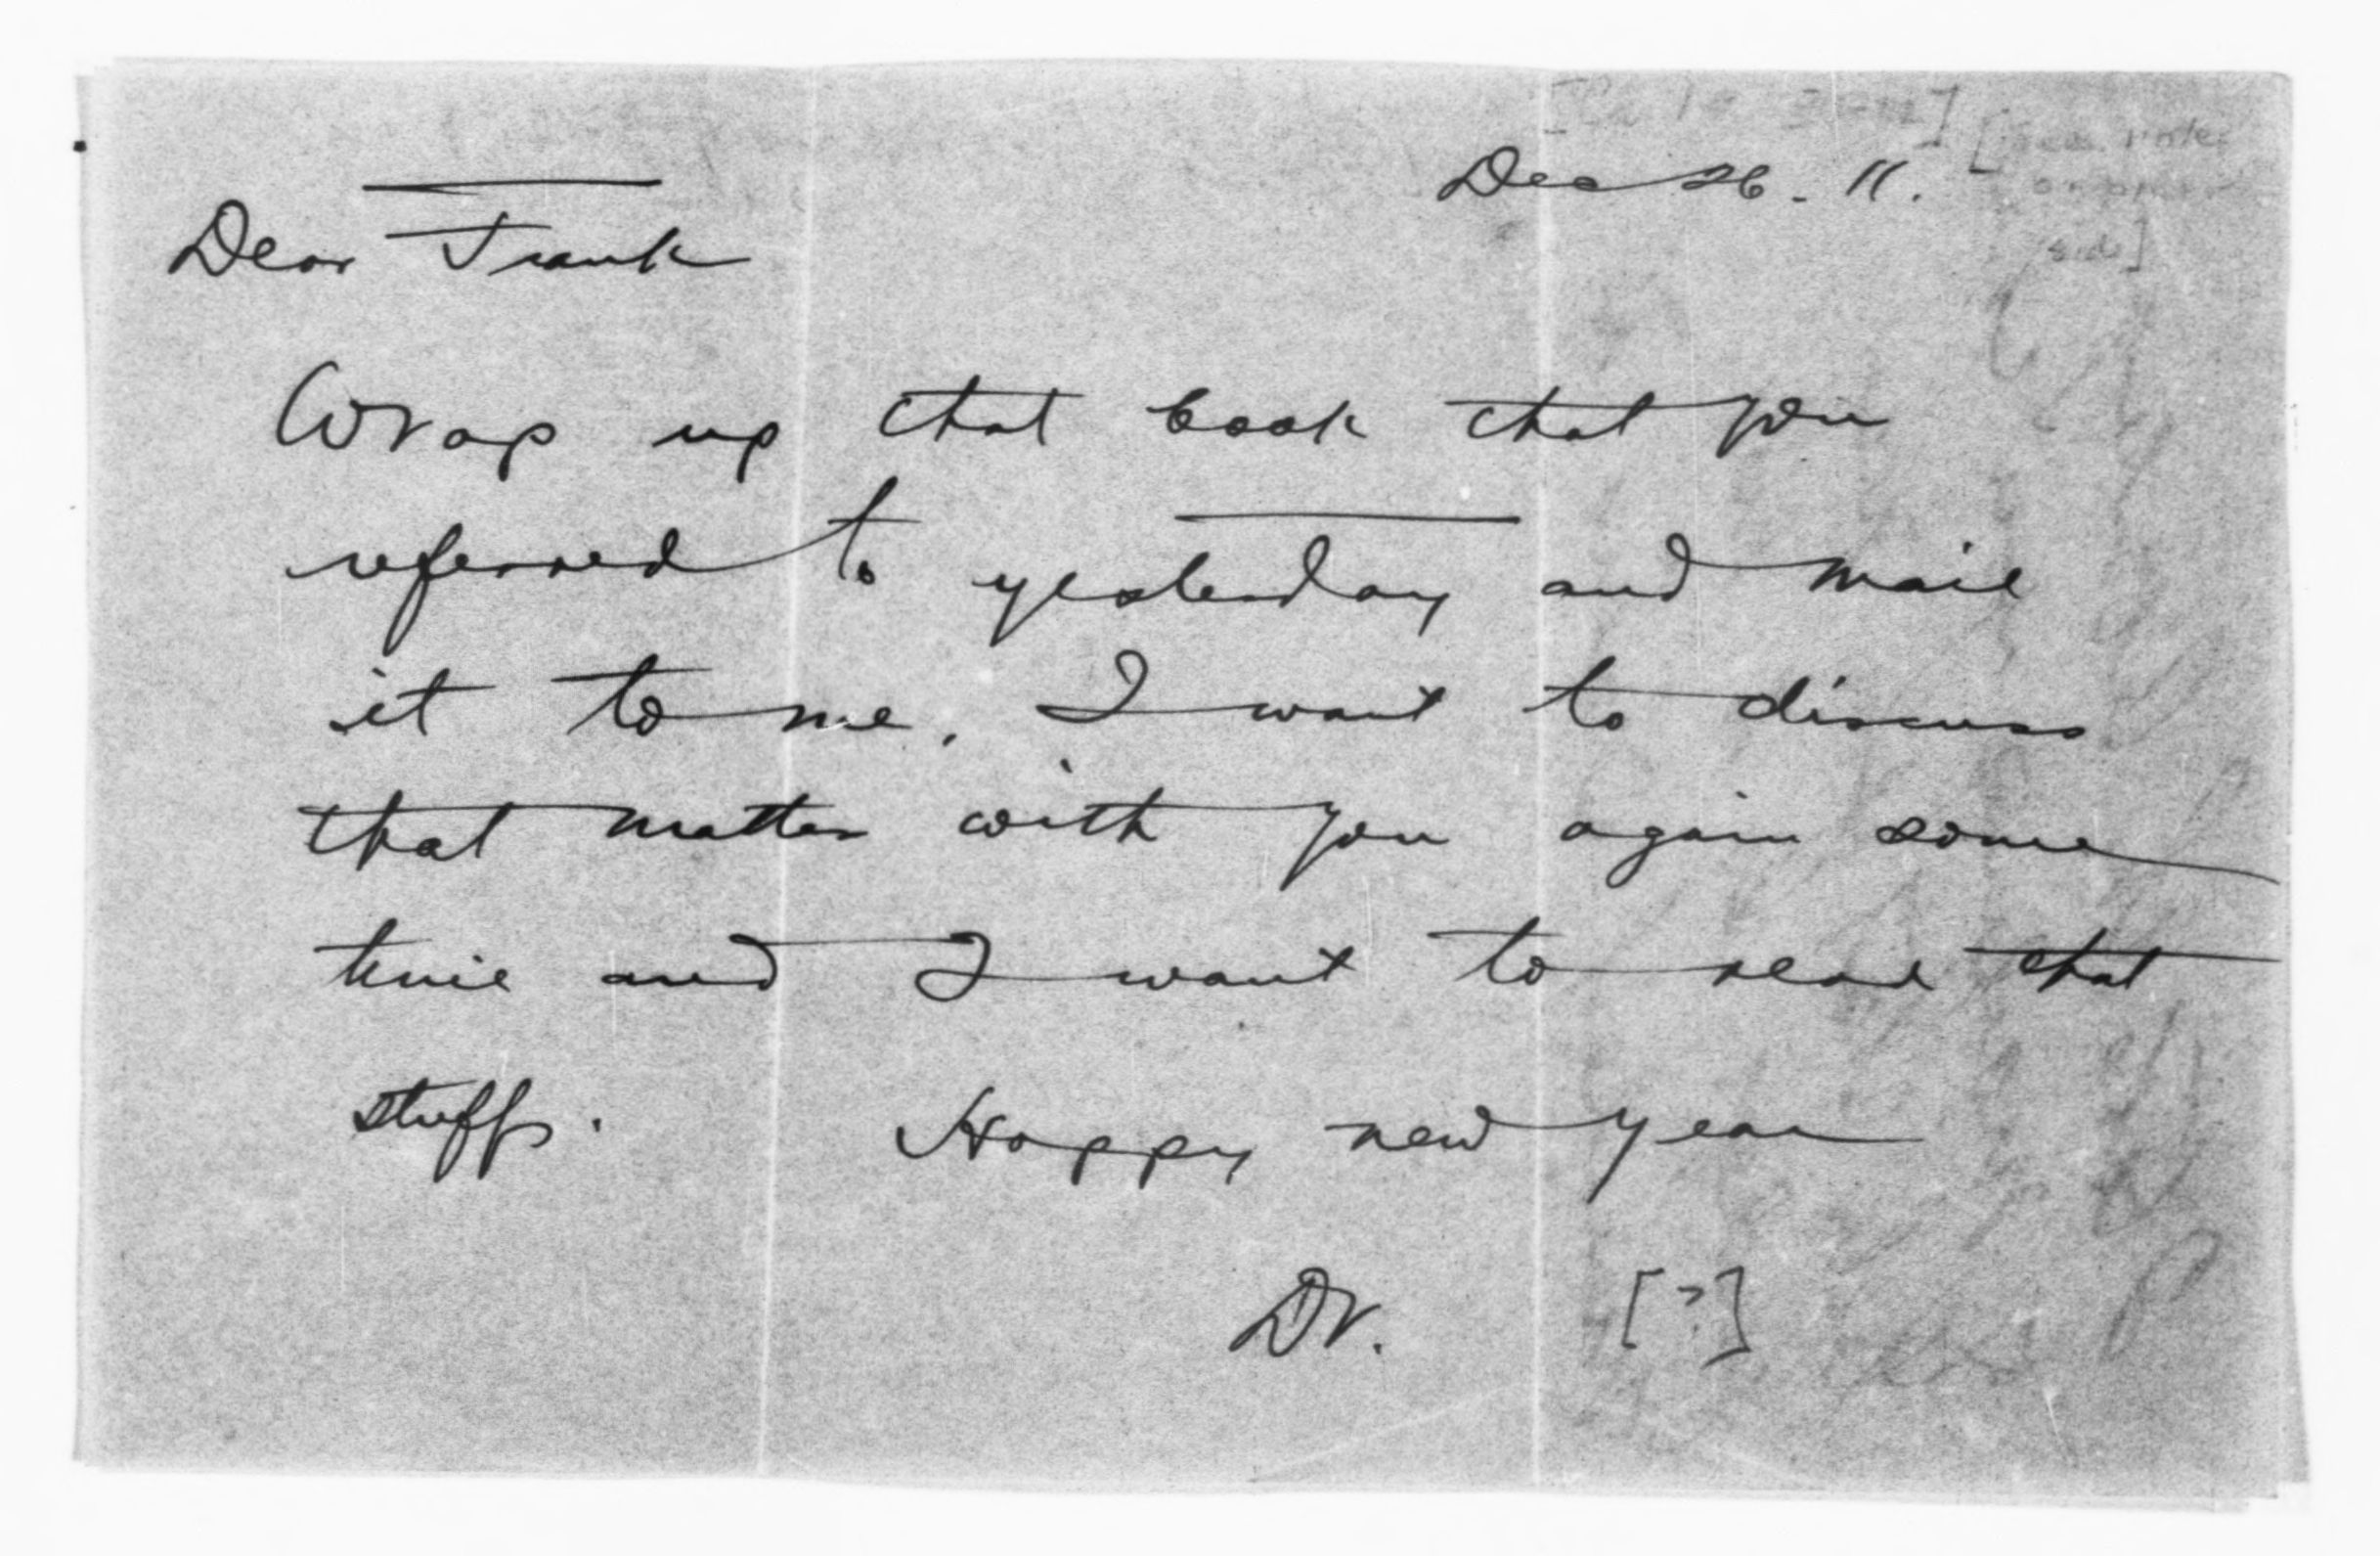 Dec 26. 11.
Dear Frank
Wrap up that book that you
referred to yesterday and mail
it to me. I want to discuss
that matter with you again some
time and I want to read that
stuff. Happy new year
Dr. [?]